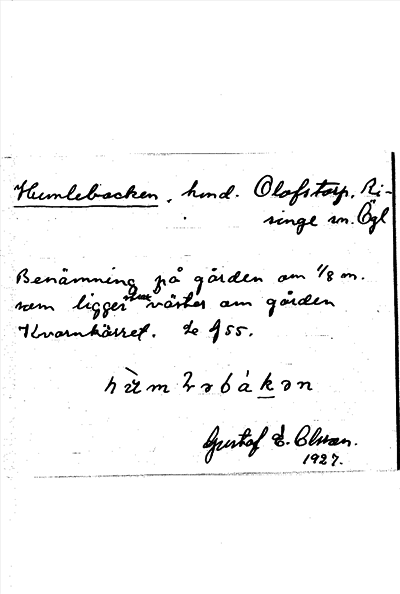 Humlebacken, hmd. Olofstorp, Ri-
singe sn. Ögl
Benämning på gården om 1/8 m.
som ligger väster om gården
Kvarnkärret. Se f 55.
Gustaf E.
1927.